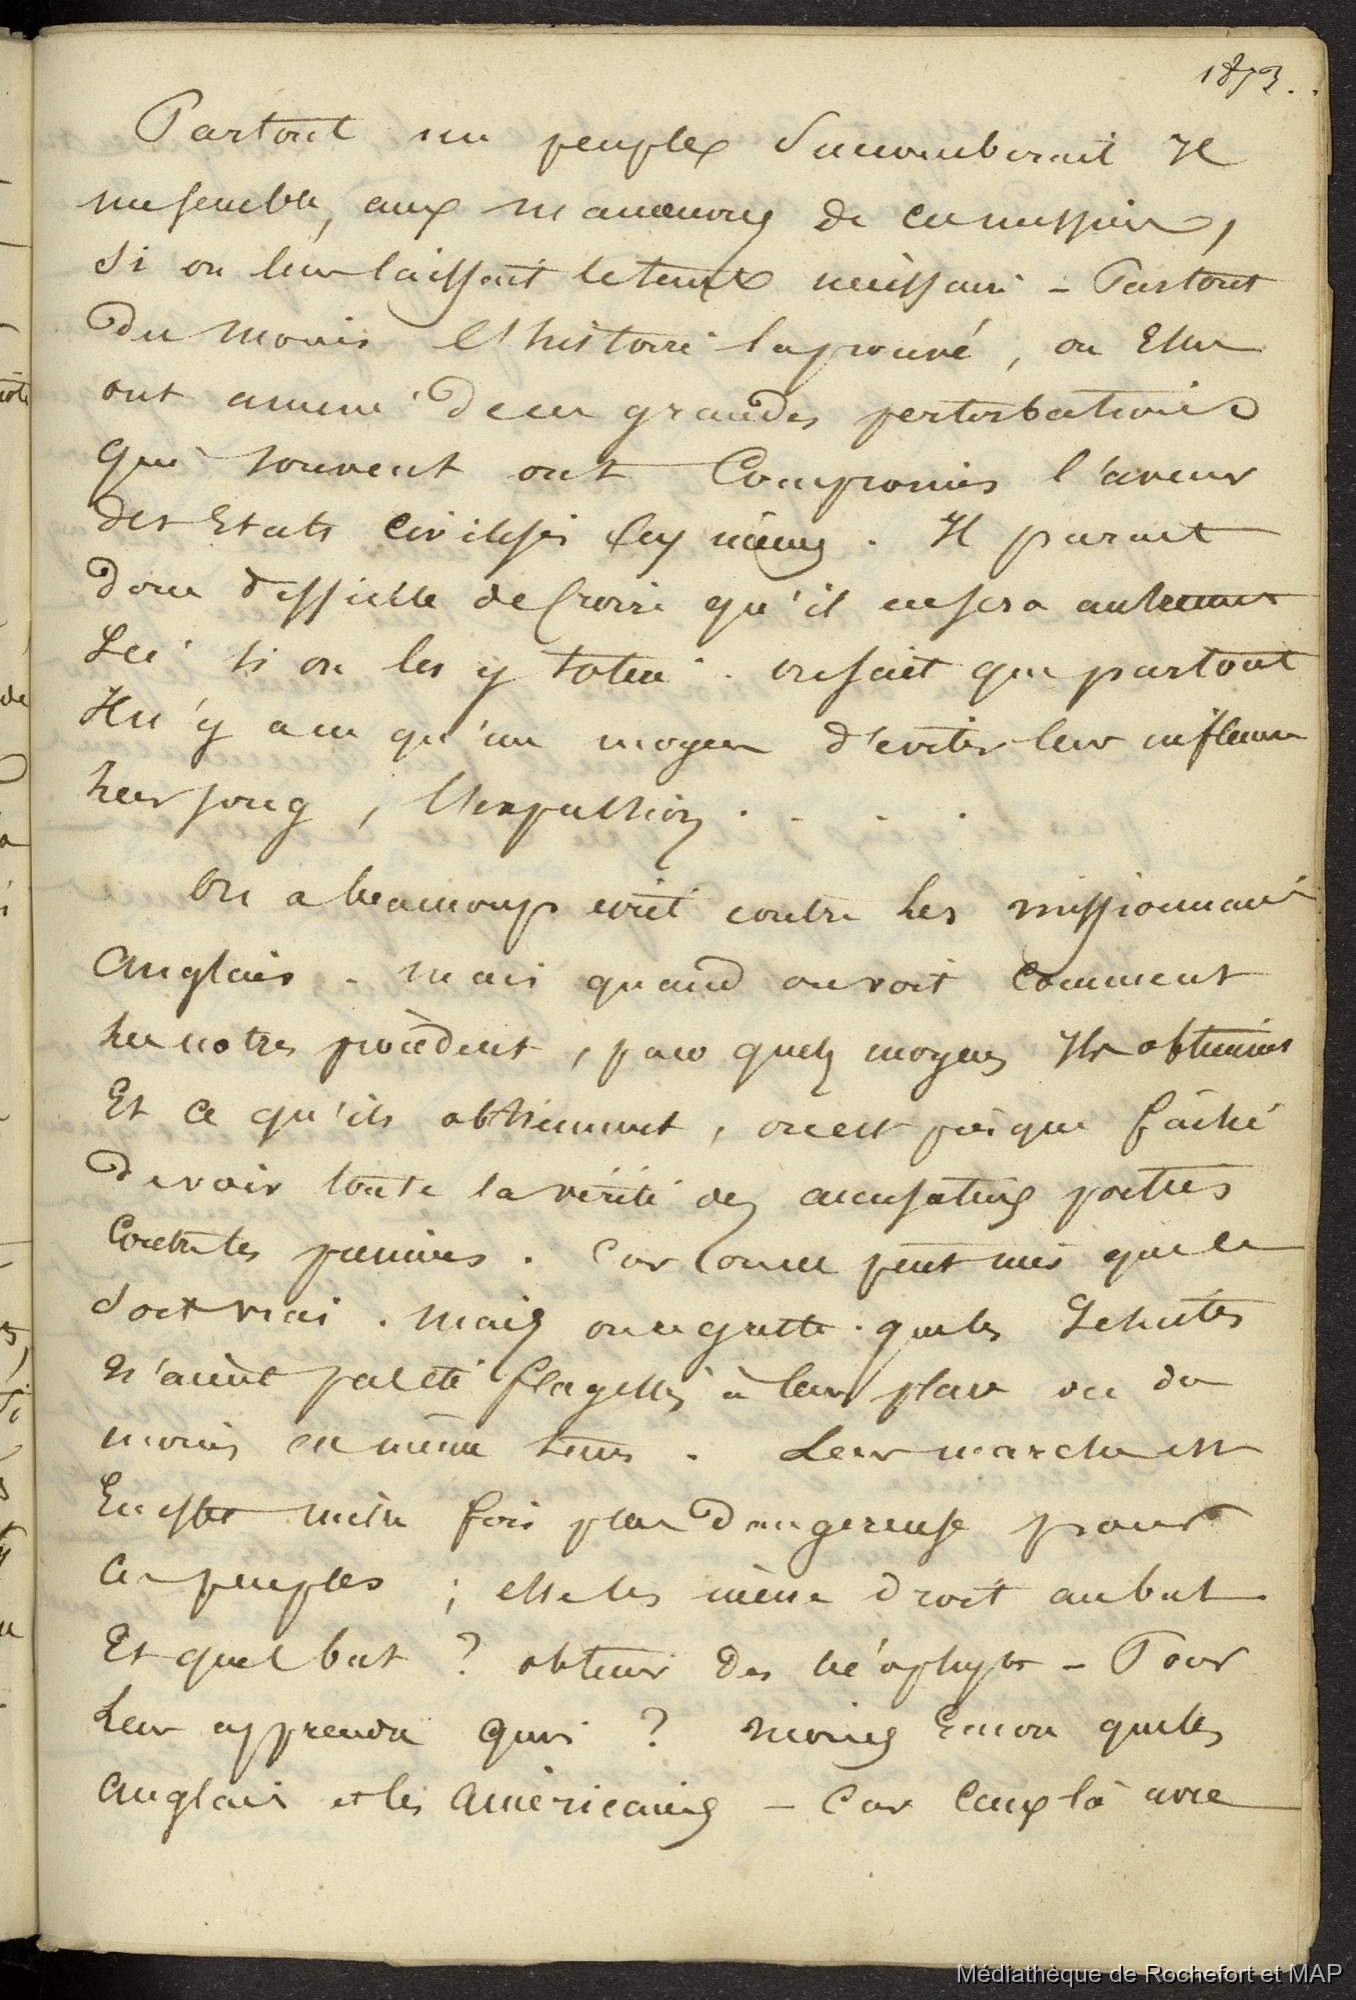 1873.
Partout un peuple Succomberait Il
me semble, aux manœuvres de ces messieurs,
Si on leur laissait le temps nécissaire - Partout
Du Moins L'histoire la prouvé, ou Elles
ont amené de ces grandes perturbations
qui souvent ont Compromis l'avenir
des Etats civilisés Eux mêmes. Il parait
Donc difficille de Croire qu'il en sera autrement
Ici si on les y tolère. on sait que partout
Il n'y a eu qu'un moyen d'eviter leur influence
leur joug, L'expulsion . . . .
On a beaucoup écrit contre les missionnaires
Anglais. Mais quand on voit Comment
les notres procèdent, par quels moyens Ils obtiennent
Et ce qu'ils obtiennent, on est presque fâché
De voir toute la vérité des accusations portées
Contre les premiers. Car on ne peut nier que ce
Soit vrai. Mais on regrette que les Jesuites
N'aient pas été flagellés à leur place ou du
moins en même tems. Leur marche est
En effet mille fois plus Dangereuse pour
Ces peuples ; elle les mène droit au but
Et quel but ? obtenir des néophytes - Pour
Leur apprendre quoi ? Moins Encore que les
Anglais et les Américains - Car Ceux là avec
Médiathèque de Rochefort et MAP